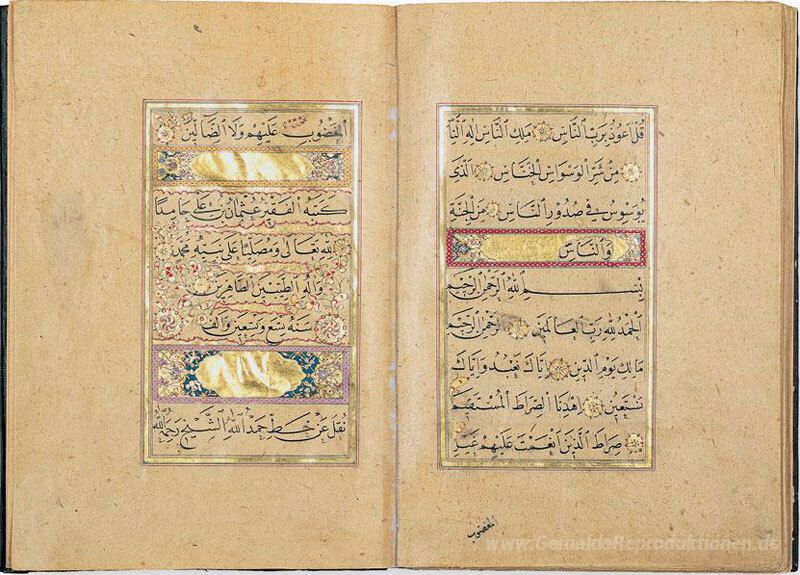 قُلْ اَعُوذُ بِرَبِّ النَّاسِ مَلِكِ النَّاسِ اِلٰهِ النَّاسِ
مِنْ شَرِّ الْوَسْوَاسِ الْخَنَّاسِ الَّذِى
يُوَسْوِسُ فِى صُدُورِ النَّاسِ مِنَ الْجِنَّةِ
وَالنَّاسِ
بِسْمِ اللهِ الرَّحْمٰنِ الرَّحِيمِ
اَلْحَمْدُ لِلّٰهِ رَبِّ الْعَالَمِينَ الرَّحْمٰنِ الرَّحِيمِ
مَالِكِ يَوْمِ الدِّينِ اِيَّاكَ نَعْبُدُ وَاِيَّاكَ
نَسْتَعِينُ اِهْدِنَا الصِّرَاطَ الْمُسْتَقِيمَ
صِرَاطَ الَّذِينَ اَنْعَمْتَ عَلَيْهِمْ غَيْرِ
المغضوب
الْمَغْضُوبِ عَلَيْهِمْ وَلَا الضَّالِّينَ
كتبه الفقير عثمان بن على حامدا
لله تعالى ومصليا على نبيه محمد
وآله الطيبين الطاهرين
سنة تسع وتسعين والف
نقل عن خط حمد الله الشيخ رحمه الله
www.GemaldeReproduktionen.de